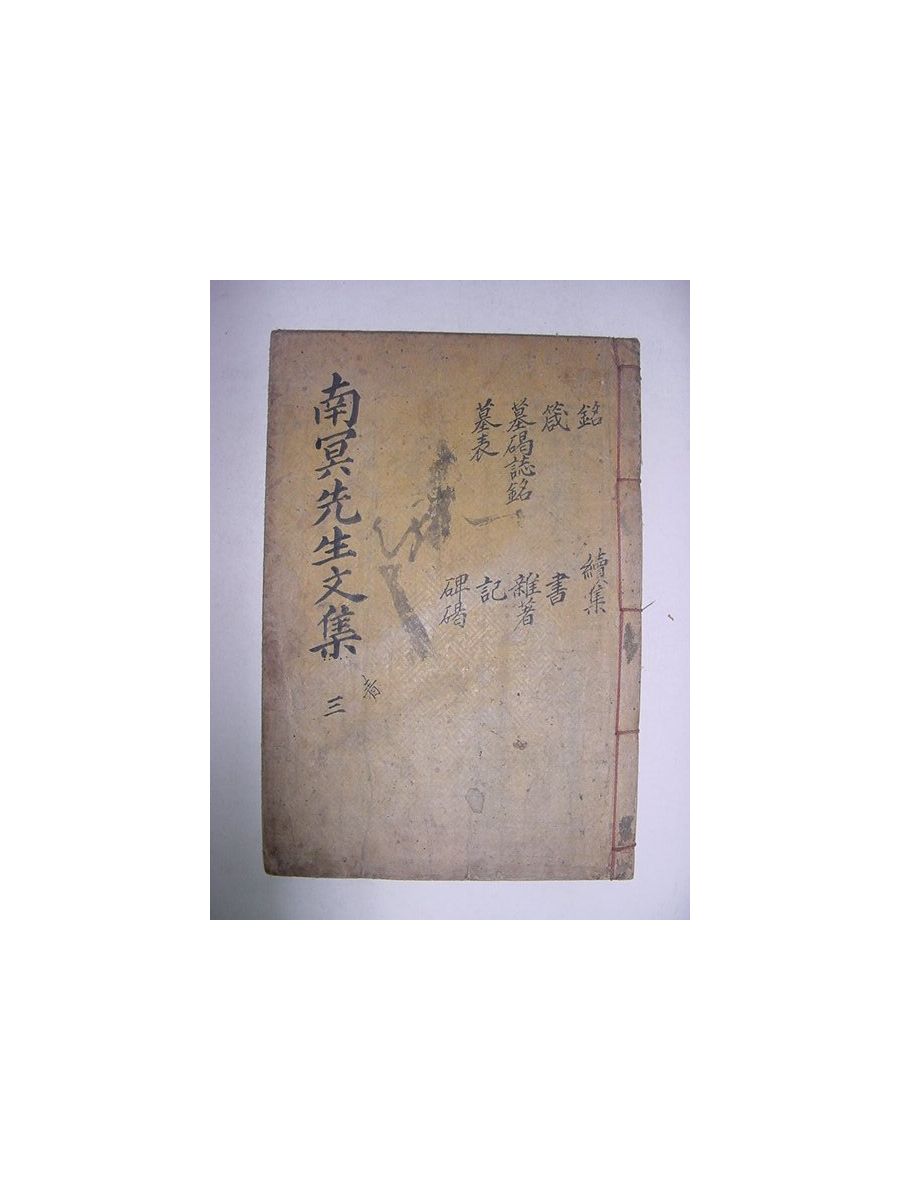 銘
箴
墓碣誌銘
墓表
續集
書
雜著
記
碑碣
南冥先生文集
三